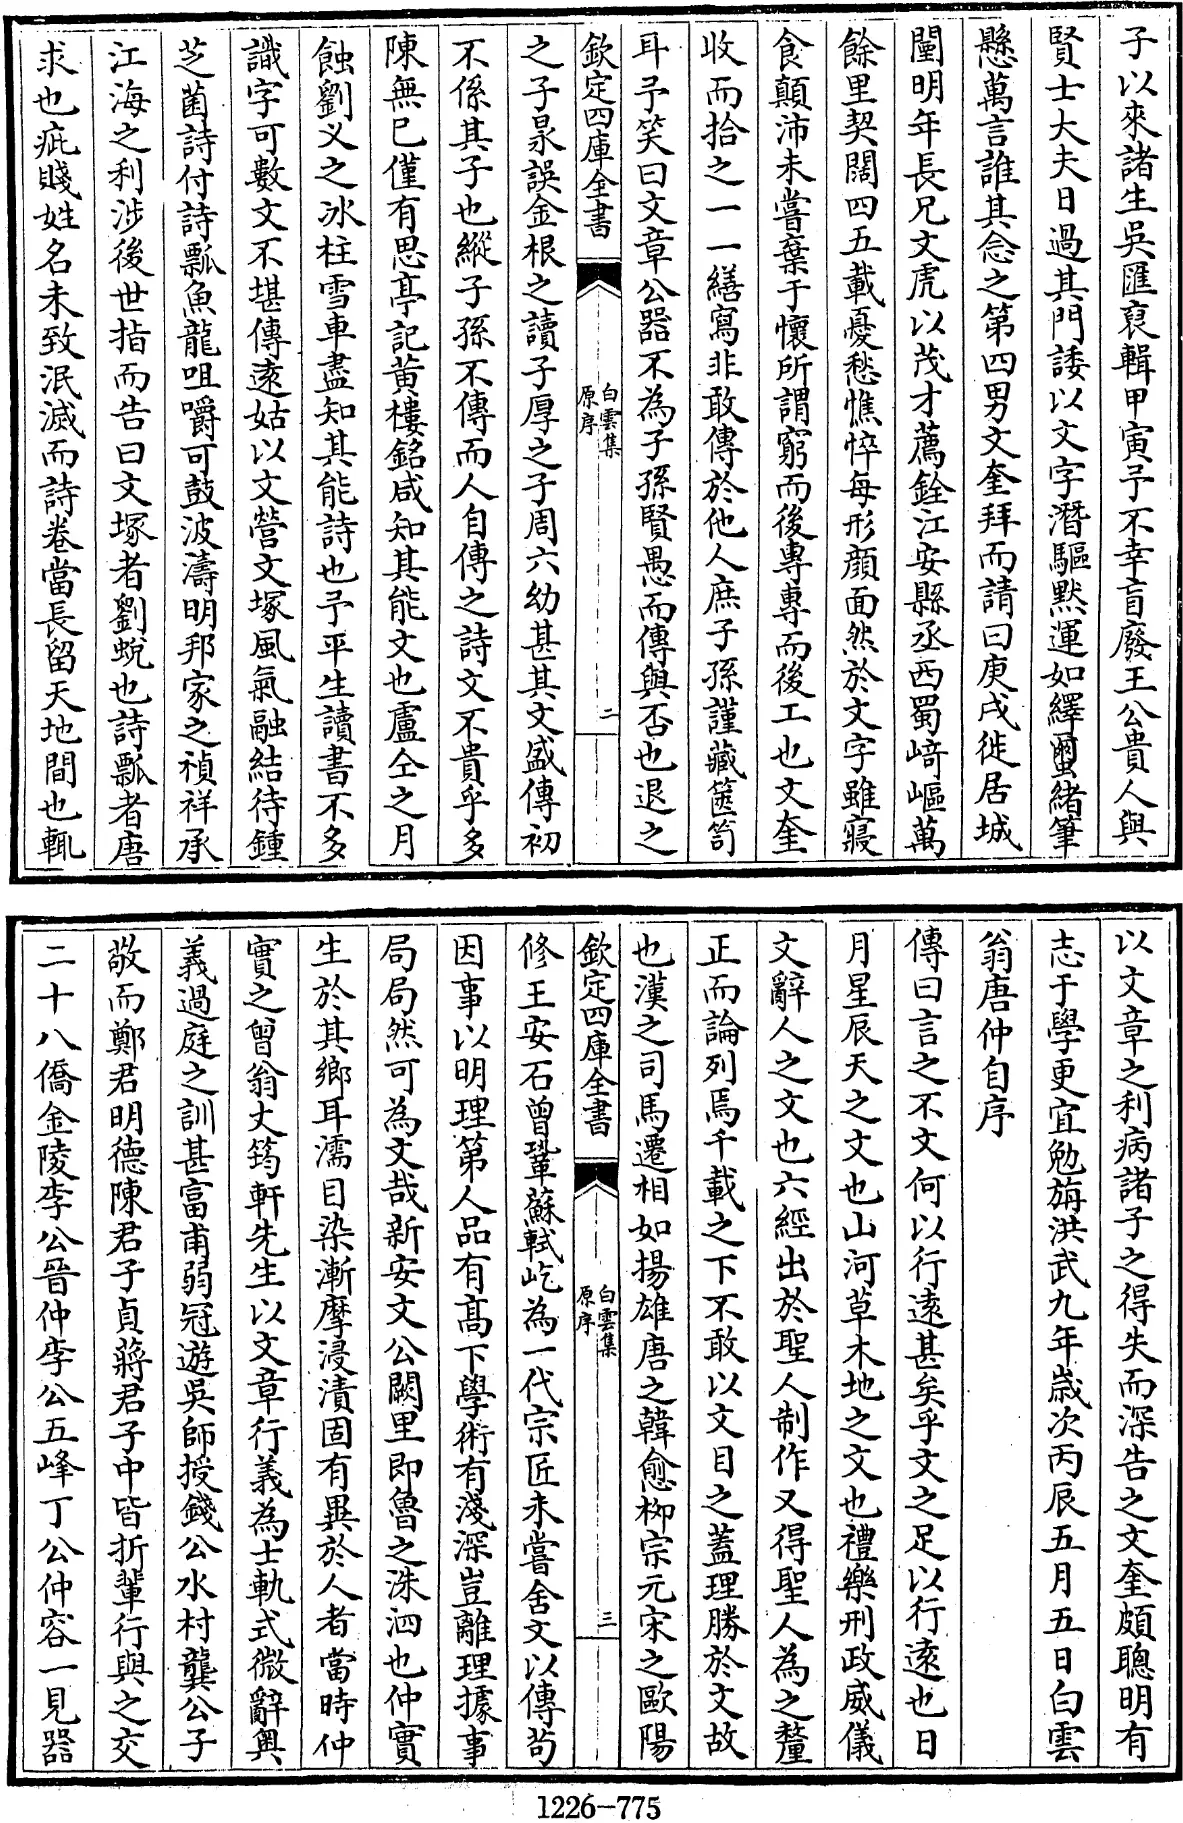 子以來諸生吳滙裒輯甲寅予不幸盲廢王公貴人與
賢士大夫日過其門諉以文字潛驅黙運如繹蠒緒筆
懸萬言誰其念之第四男文奎拜而請曰庚戌徙居城
闉明年長兄文虎以茂才薦銓江安縣丞西蜀﨑嶇萬
餘里契闊四五載憂愁憔悴每形顔面然於文字雖寢
食顛沛未嘗棄于懷所謂窮而後專專而後工也文奎
收而拾之一一繕寫非敢傳於他人庶子孫謹藏篋笥
耳予笑曰文章公器不為子孫賢愚而傳與否也退之
欽定四庫全書
白雲集
原序
二
之子㫤誤金根之讀子厚之子周六幼甚其文盛傳初
不係其子也縱子孫不傳而人自傳之詩文不貴乎多
陳無已僅有思亭記黄樓銘咸知其能文也盧仝之月
蝕劉义之冰柱雪車盡知其能詩也予平生讀書不多
識字可數文不堪傳逺姑以文營文塚風氣融結待鍾
芝菌詩付詩瓢魚龍咀嚼可鼓波濤明邦家之禎祥承
江海之利涉後世指而告曰文塚者劉蛻也詩瓢者唐
求也疵賤姓名未致泯滅而詩卷當長留天地間也輒
以文章之利病諸子之得失而深告之文奎頗聰明有
志于學更宜勉旃洪武九年嵗次丙辰五月五日白雲
翁唐仲自序
傳曰言之不文何以行逺甚矣乎文之足以行逺也日
月星辰天之文也山河草木地之文也禮樂刑政威儀
文辭人之文也六經出於聖人制作又得聖人為之釐
正而論列焉千載之下不敢以文目之蓋理勝於文故
也漢之司馬遷相如揚雄唐之韓愈栁宗元宋之歐陽
欽定四庫全書
白雲集
原序
三
修王安石曾鞏蘇軾屹為一代宗匠未嘗舍文以傳茍
因事以明理第人品有髙下學術有淺深豈離理據事
局局然可為文哉新安文公闕里即魯之洙泗也仲實
生於其鄉耳濡目染漸摩浸漬固有異於人者當時仲
實之曾翁丈筠軒先生以文章行義為士軌式微辭奥
義過庭之訓甚富甫弱冠遊吳師授錢公水村龔公子
敬而鄭君明德陳君子貞蔣君子中皆折輩行與之交
二十八僑金陵李公晉仲李公五峰丁公仲容一見器
1226-775